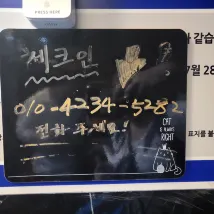 체크인
010-4234-5282
전화 주세요!
CAT
IS ALWAYS
RIGHT
과 같습
7월 28
표지를 붙